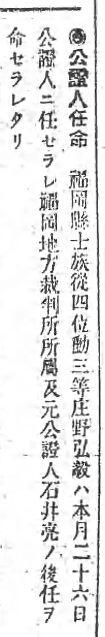 ◉公證人任命　福岡縣士族從四位勳三等庄野弘毅ハ本月二十六日
公證人ニ任セラレ福岡地方裁判所所屬及元公證人石井亮ノ後任ヲ
命セラレタリ